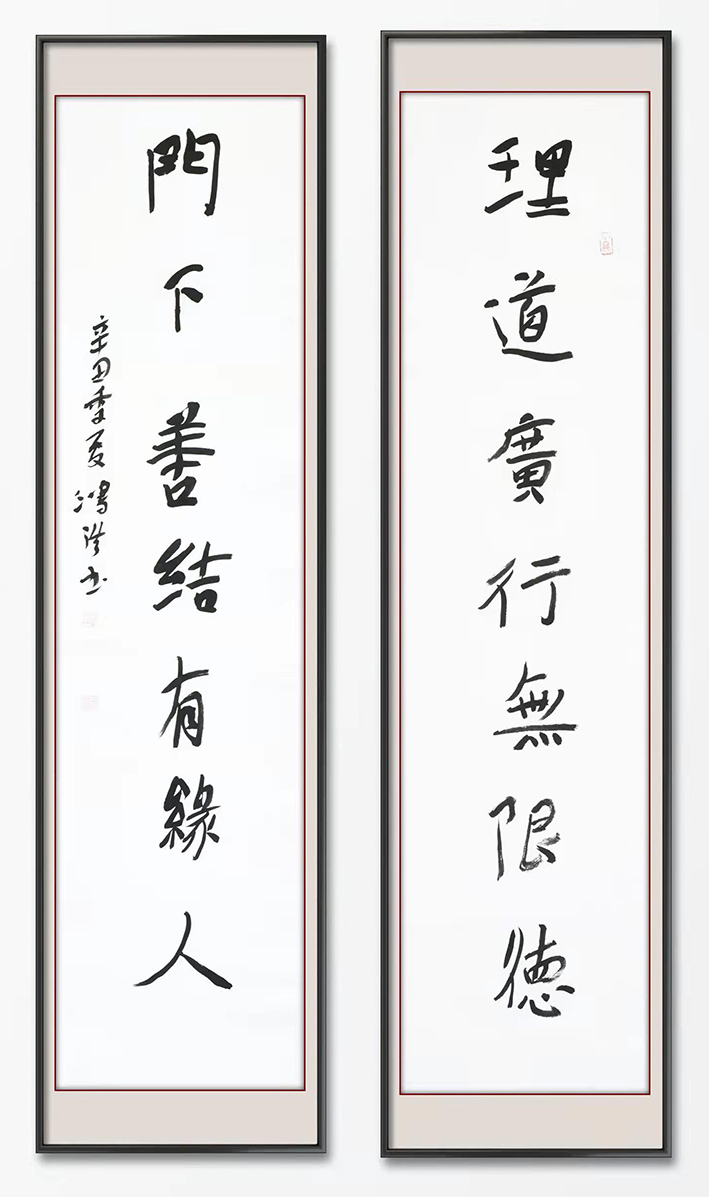 理道廣行無限德
門下善結有緣人
辛丑季夏 鴻洪书